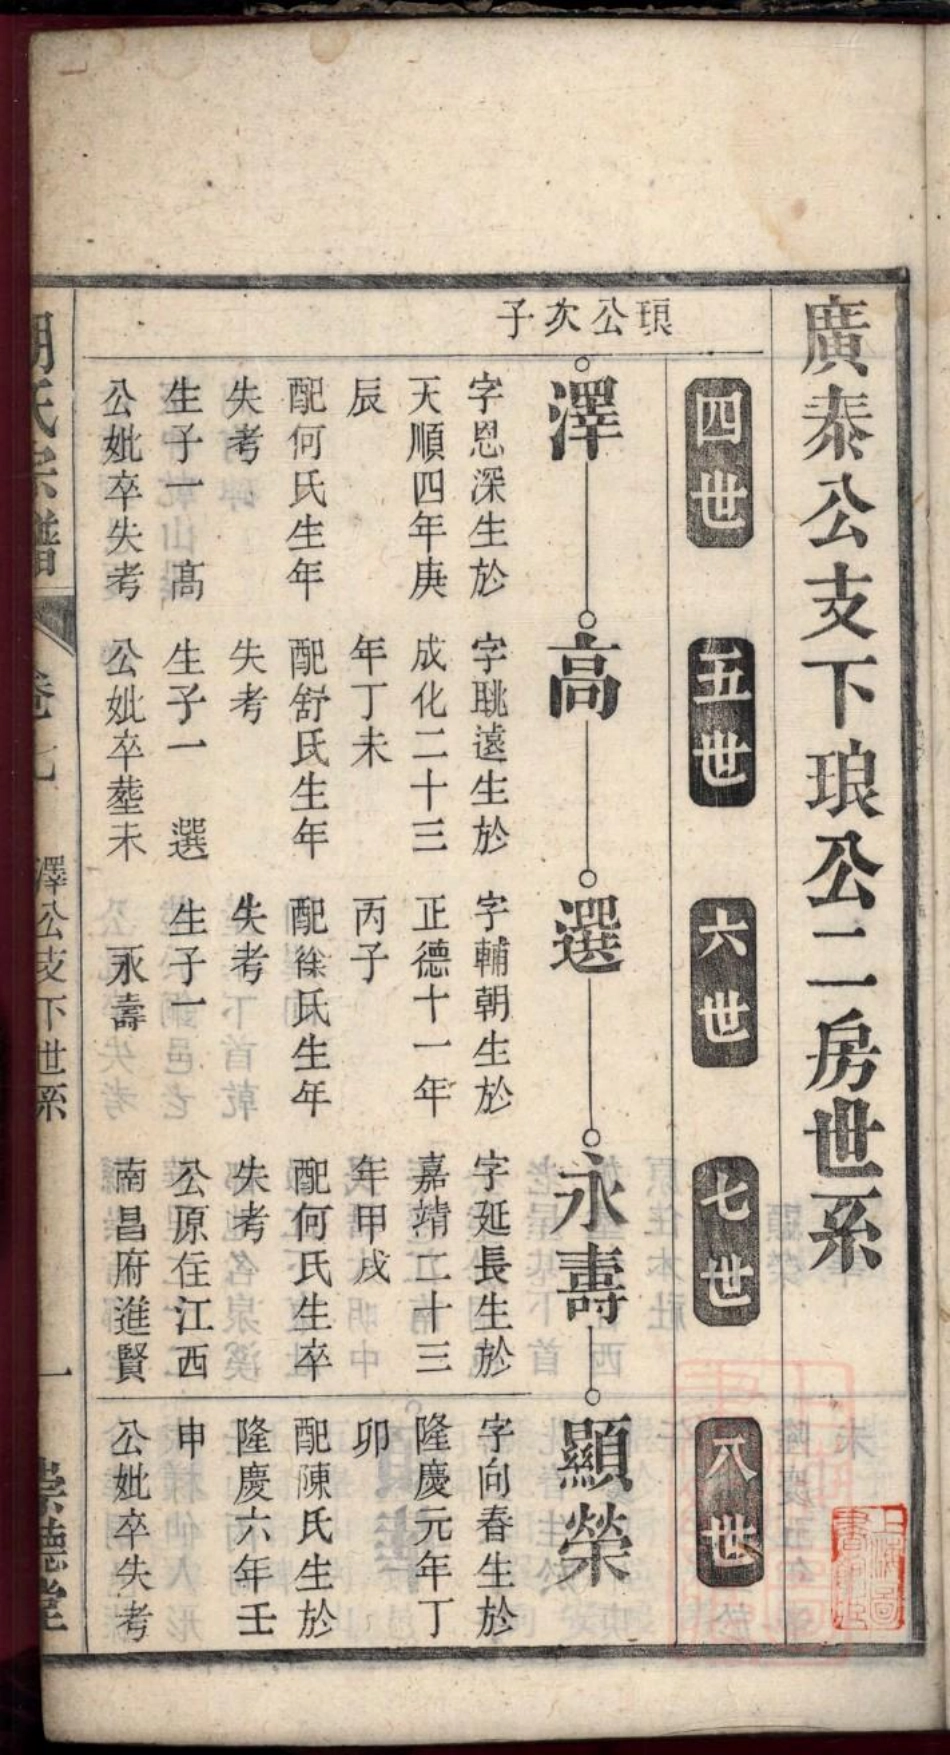 廣泰公支下琅公二房世系
四世
五世
六世
七世
八世
琅公次子
澤
高
選
永壽
顯榮
字恩深生於
天順四年庚
辰
配何氏生年
失考
生子一 高
公妣卒失考
字聎遠生於
成化二十三
年丁未
配舒氏生年
失考
生子一 選
公妣卒塟未
字輔朝生於
正德十一年
丙子
配徐氏生年
失考
生子一
永壽
字延長生於
嘉靖二十三
年甲戌
配何氏生卒
失考
公原住江西
南昌府進賢
字向春生於
隆慶元年丁
卯
配陳氏生於
隆慶六年壬
申
公妣卒失考
胡氏宗譜
卷七
澤公支下世系
一
崇德堂